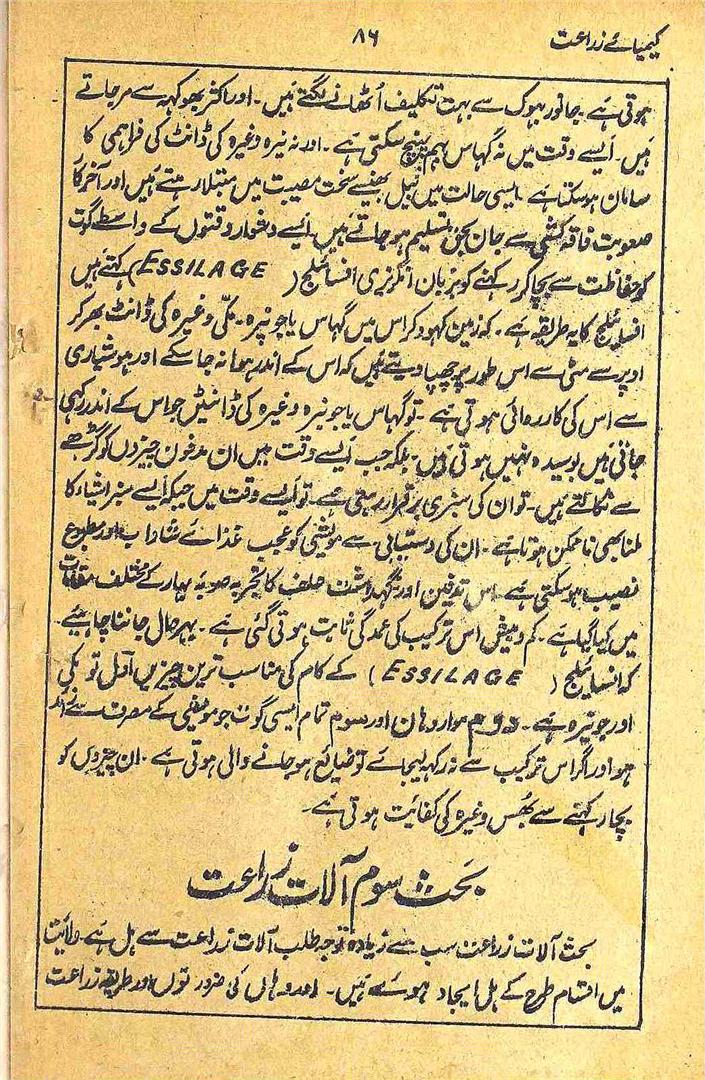 کیمیائے زراعت ۸۶
ہوتی ہَے۔ جانور بہوک سے بہت تکلیف اُٹھانے لگتے ہَیں۔ اور اکثر بھوکہہ سے مر جاتے
ہَیں۔ اَیسے وقت میں نہ گہاس بہم پہنچ سکتی ہَے۔ اور نہ نیرہ وغیرہ کی ڈانٹ کی فراہمی کا
سامان ہوسکتا ہَے۔ ایسی حالت میں بَیل بھینسے سخت مصیبت میں مبتلا رہتے ہَیں اور آخر کا
صعوبت فاقہ کشی سے جان بحق تسلیم ہوجاتے ہَیں۔ اَیسے دشوار وقتوں کے واسطے گہت
کو حفاظت سے بچا کر رکہنے کو بزبان انگریزی انسائلج (ESSILAGE) کہتے ہَیں
انسائلج کا یہ طریقہ ہَے۔ کہ زمین کہود کر اس میں گہاس یا جونیرہ۔ مکّی وغیرہ کی ڈانٹ بھر کر
اوپر سے مٹی سے اس طور پر چھپا دیتے ہَیں کہ اس کے اندر ہوا نہ جاسکے اور ہوشیاری
سے اس کی کارروائی ہوتی ہَے۔ تو گہاس یا جونیرہ وغیرہ کی ڈانٹیں جو اس کے اندر رکہی
جاتی ہَیں بوسیدہ نہیں ہوتی ہَیں۔ بلکہ جب اَیسے وقت میں ان مدفون چیزوں کو گڑھے
سے نکالتے ہَیں۔ تو ان کی سبزی برقرار رہتی ہَے۔ تو اَیسے وقت میں جبکہ اَیسے سبز اشیاء کا
ملنا بھی ناممکن ہوتا ہَے۔ ان کی دستیابی سے مویشی کو عجب غذائے شاداب اور مطبوع
نصیب ہوسکتی ہَے۔ اس تدفین اور نگہداشت علف کا تجربہ صوبہ بہار کے مختلف مقامات
میں کیا گیا ہَے۔ کم و بیش اس ترکیب کی عمدگی ثابت ہوتی گئی ہَے۔ بہر حال جاننا چاہیئے۔
کہ انسائلج (ESSILAGE) کے کام کی مناسب ترین چیزیں اوّل تو مکی
اور جونیرہ ہَے۔ دوم موا روہان اور سوم تمام ایسی گوت جو مویشی کے مصرف سے زائد
ہو اور اگر اس ترکیب سے نہ رکہہ لیجائے تو ضائع ہوجانے والی ہوتی ہَے۔ ان چیزوں کو
بچا رکہنے سے بھُس وغیرہ کی کفائیت ہوتی ہَے۔
بحث سوم آلات زراعت
بحث آلات زراعت سب سے زیادہ توجہ طلب آلات زراعت سے ہل ہَے۔ ولائیت
میں اقسام طرح کے ہل ایجاد ہوئے ہَیں۔ اور وہاں کی ضرورتوں اور طریقہ زراعت